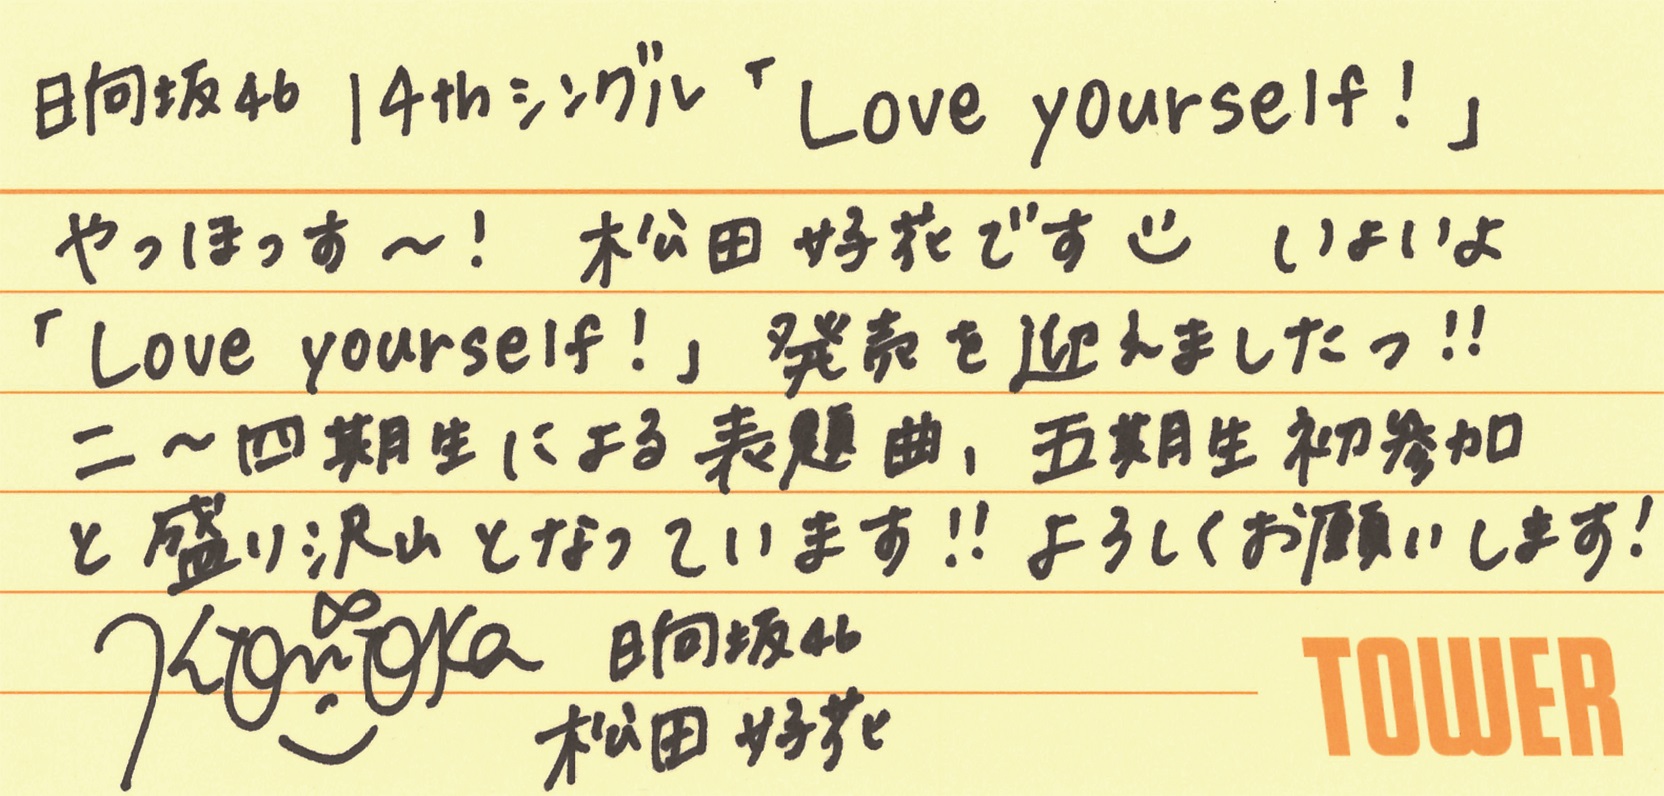 日向坂46 14thシングル「Love yourself!」
やっほっす～! 松田好花です いよいよ
「Love yourself!」発売を迎えましたっ!!
二～四期生による表題曲、五期生初参加
と盛り沢山となっています!! よろしくお願いします!
Konoka 日向坂46
松田好花
TOWER